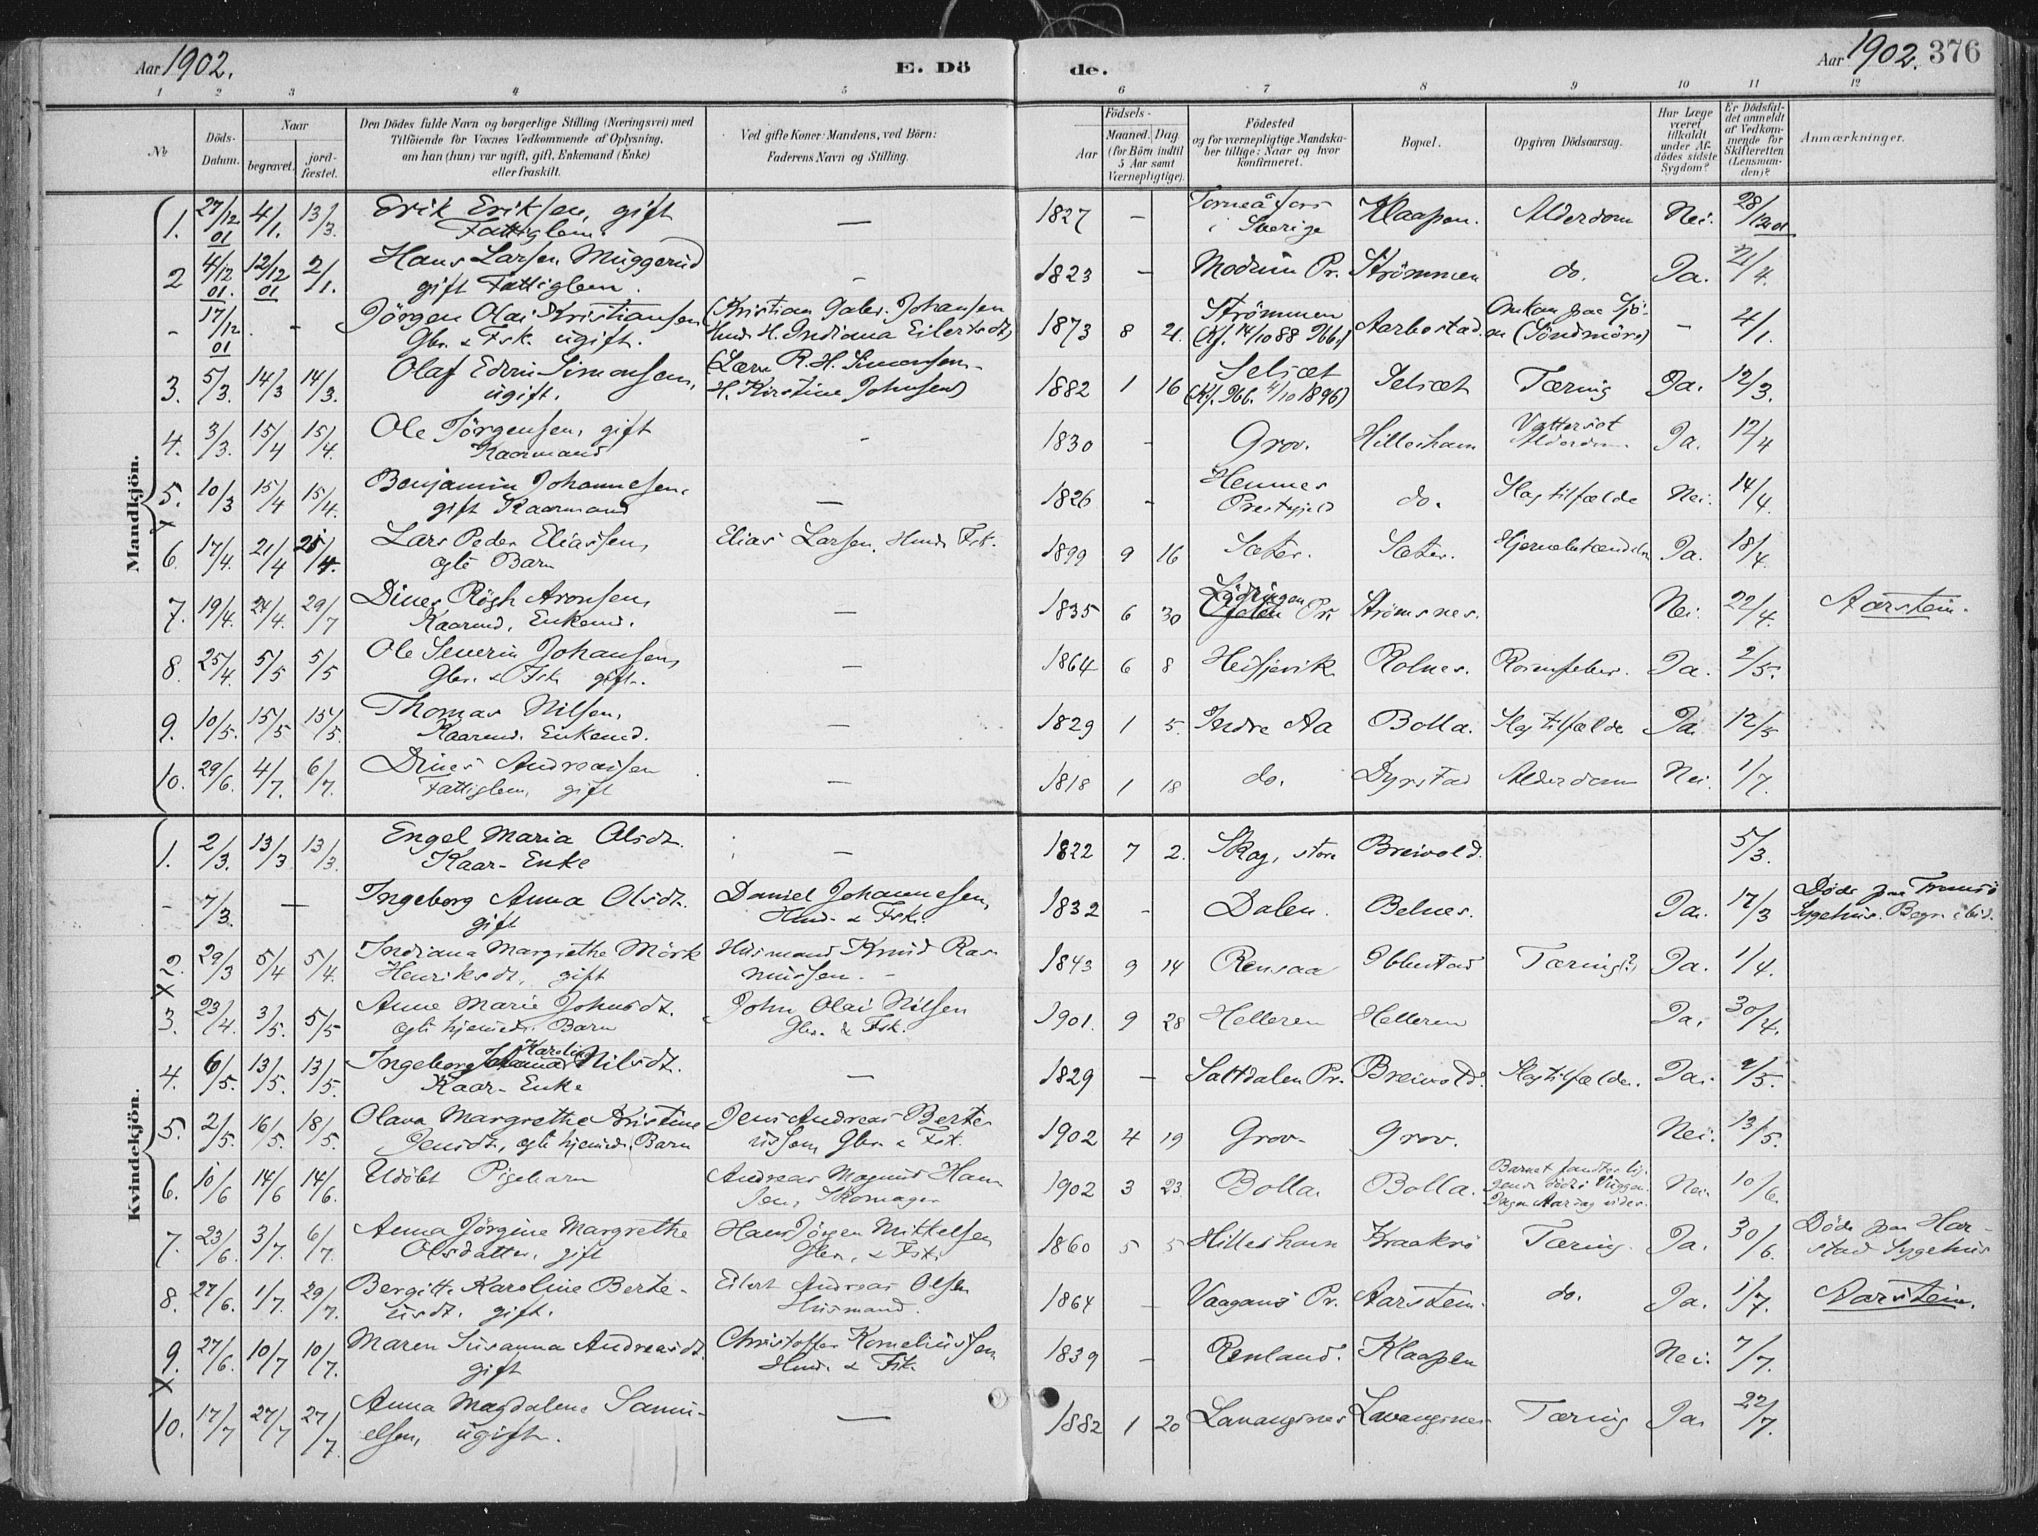 Aar 1902.
E. Dö
de.
Aar 1902. 376
1 2 3 4 5 6 7 8 9 10 11 12
No
Döds-Datum.
Naar
begravet. jord-fæstet.
Den Dödes fulde Navn og borgerlige Stilling (Næringsvei) med
Tilföiende for Voxnes Vedkommende af Oplysning,
om han (hun) var ugift, gift, Enkemand (Enke)
eller fraskilt.
Ved gifte Koner: Mandens, ved Börn:
Faderens Navn og Stilling.
Födsels-
Aar
Maaned. Dag
(for Börn indtil
5 Aar samt
Værnepligtige).
Födested
og for værnepligtige Mandska-
ber tillige: Naar og hvor
konfirmeret.
Bopæl.
Opgiven Dödsaarsag.
Har Læge
været
tilkaldt
under Af-
dödes sidste
Sygdom?
Er Dödsfal-
det anmeldt
af Vedkom-
mende for
Skifteretten
(Lensman-
den)?
Anmærkninger.
Mandkjön.
1. 27/12 01 4/1. 13/3. Erik Eriksen, gift — 1827 — Torneå fors Klaapen. Alderdom Nei. 28/12 01
Fattiglem. i Sverige
2 4/12 01. 12/12 01 2/1. Hans Larsen Muggerud - 1823 — Modum Pr. Strömmen do. Ja. 4.
gift Fattiglem.
- 17/12 01 - Jörgen Olai Kristiansen (Kristian Gabr. Johansen 1873 8 21. Strömmen Aarbostad. Omkom paa Sjö- - 4/1.
Gbr. & Fsk. ugift. Hmd. H. Indiana Eilertsdt) (Kf. 14/10 88 Ibb.) en (Söndmöre)
3. 5/3. 14/3 14/3. Olaf Edvin Simonsen, (Lærer R. H. Simonsen- 1882 1 16 Selsæt Selsæt Tæring Ja. 12/3.
ugift. H. Kirstine Johnsen) (Kf. Ibb. 4/10 1896)
4. 3/3. 15/4 15/4. Ole Jörgensen, gift - 1830 - Grov. Hilleshavn Vattersot Ja. 12/4
Kaarmand Alderdom
5. 10/3 15/4 15/4. Benjamin Johannesen, — 1826 - Hemnes do. Slagtilfælde Nei. 14/4.
gift Kaarmand Prestegjeld
6. 17/4. 21/4 25/4. Lars Peder Eliassen, Elias Larsen, Hmd. Fsk. 1899 9 16 Sæter. Sæter. Hjernebetændelse Ja. 18/4.
ægte Barn
7. 19/4. 24/4. 29/7 Dines Rögh Aronsen, — 1835 6 30 Lödingen Pr. Strømsnes. Nei. 22/4. Aarstein.
Kaarmd. Enkemd.
8. 25/4. 5/5 5/5 Ole Severin Johansen, — 1864 6 8 Hesfjevik Rolnes. Rosenfeber. Ja. 2/5.
Gbr. & Fsk. gift.
9. 10/5. 15/5 15/5. Thomas Nilsen, — 1829 1 5. Indre Aa Bolla. Slagtilfælde Ja. 12/5
Kaarmd. Enkemd.
10. 29/6. 4/7. 6/7. Dines Andreassen — 1818 1 18 do. Dyrstad Alderdom Nei. 1/7.
Fattiglem, gift
Kvindekjön.
1. 2/3. 13/3 13/3. Engel Maria Olsdt. — 1822 7 2. Skog, store Breivold. 5/3.
Kaar-Enke
- 7/3. — Ingeborg Anna Olsdt. Daniel Johannesen, 1832 - Dalen. Belnes. Ja. 17/3 Döde paa Tromsö
gift Hmd. & Fsk. Sygehus.
2. 29/3 5/4 5/4. Indiana Margrethe Mörk Husmand Knud Ras- 1843 9 14 Rensaa Ibbestad Tæring(?) Ja. 1/4.
Henriksdt, gift mussen.
3. 23/4. 3/5. 5/5 Anne Marie Johnsdt. John Olai Nilsen 1901. 9 28 Helleren Helleren Ja. 30/4.
ægte hjemmed. Barn Gbr. & Fsk.
4. 6/5. 13/5. 13/5. Ingeborg Karoline Nilsdt. — 1829 — Saltdalen Pr. Breivold. Slagtilfælde. Ja. 9/5.
Kaar-Enke
5. 2/5. 16/5. 18/5. Olava Margrethe Kristine Jens Andreas Berte- 1902 4 19 Grov. Grov. Nei. 13/5.
Jensdt, ægte hjemmed. Barn ussen Gbr. & Fsk.
6. 10/6 14/6 14/6. Udöbt Pigebarn Andreas Magnus Han- 1902 3 23. Bolla. Bolla. Barnet fandtes lig- Nei. 10/6.
sen, Skomager gende dødt i Vuggen.
Ingen Aarsag vides.
7. 23/6 3/7. 6/7. Anna Jörgine Margrethe Hans Jörgen Mikkelsen 1860 5 5 Hilleshavn Kraakrö Tæring. Ja. 30/6. Döde paa Har-
Olsdatter, gift Gbr. & Fsk. stad Sygehus
8. 27/6. 1/7. 29/7. Bergitte Karoline Berte- Eilert Andreas Olsen 1864 - Vaagans Pr. Aarstein. do. Ja. 1/7. Aarstein.
usdt. gift. Husmand.
9. 27/6. 10/7 10/7. Maren Susanna Andreasdt. Christoffer Korneliussen 1839 - Renland. Klaapen Nei. 7/7.
gift Hmd. & Fsk.
10. 17/7 27/7 27/7. Anna Magdalene Samu- — 1882 1 20 Lavangsnes Lavangsnes Tæring Ja. 22/7.
elsen, ugift.